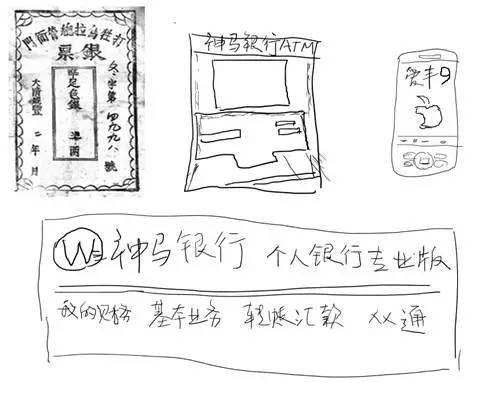 打牲烏拉總管衙門
銀票
字第四九九八號
足色銀
大清
二年 月
神马银行ATM
爱丰9
W 神马银行 个人银行专业版
我的财务 基本业务 转账汇款 XX通